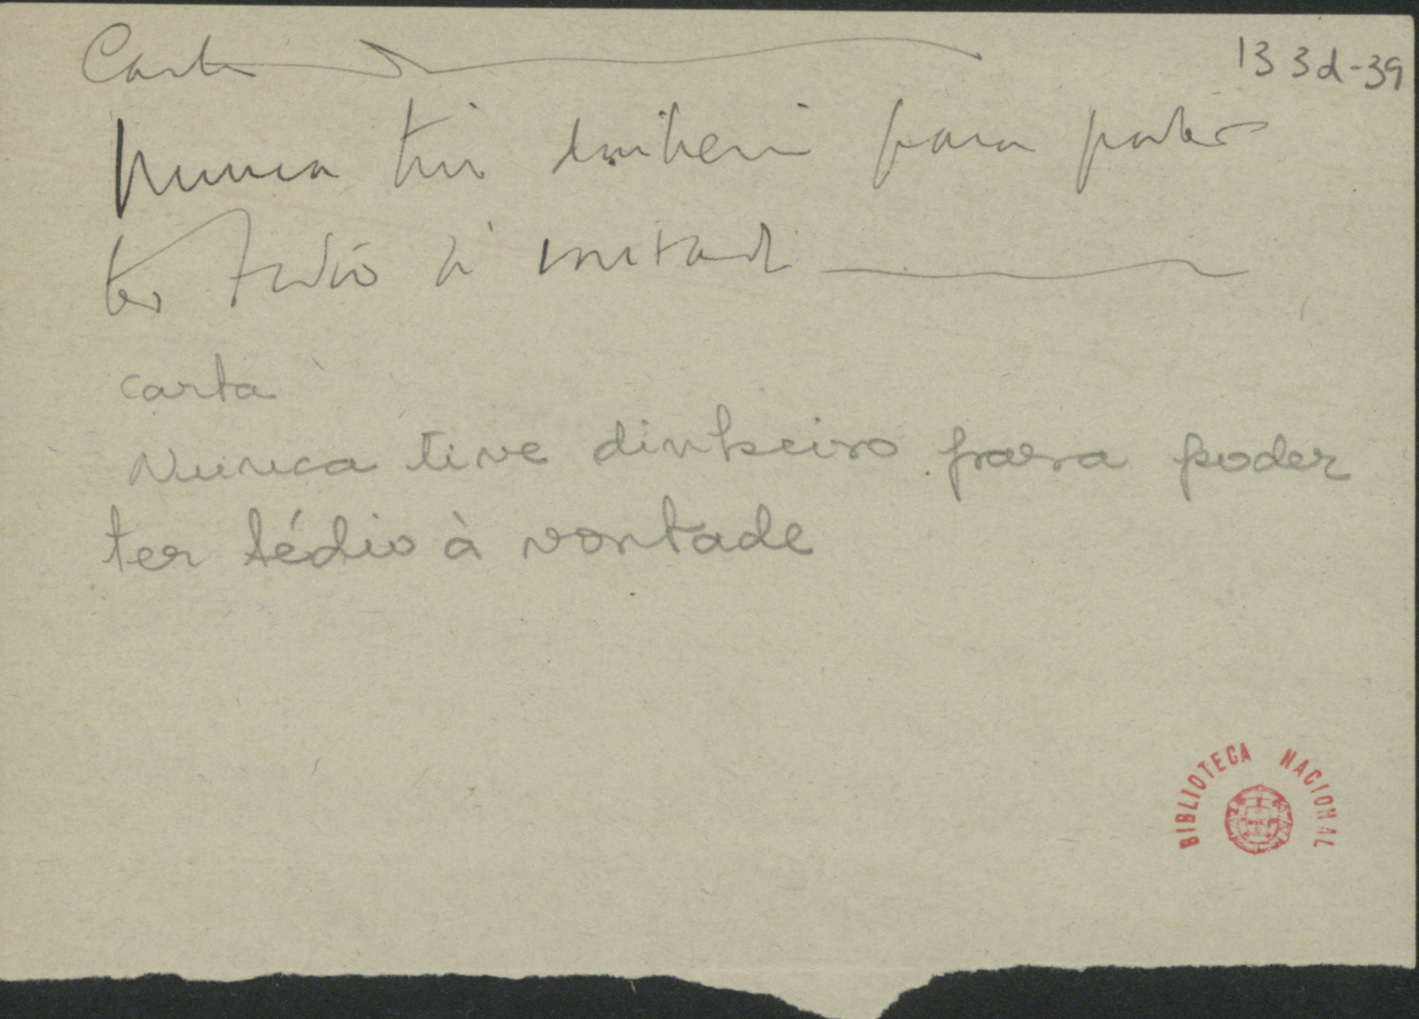 Carta
133d-39
Nunca tive dinheiro para poder
ter tédio à vontade
carta
Nunca tive dinheiro para poder
ter tédio à vontade
BIBLIOTECA NACIONAL